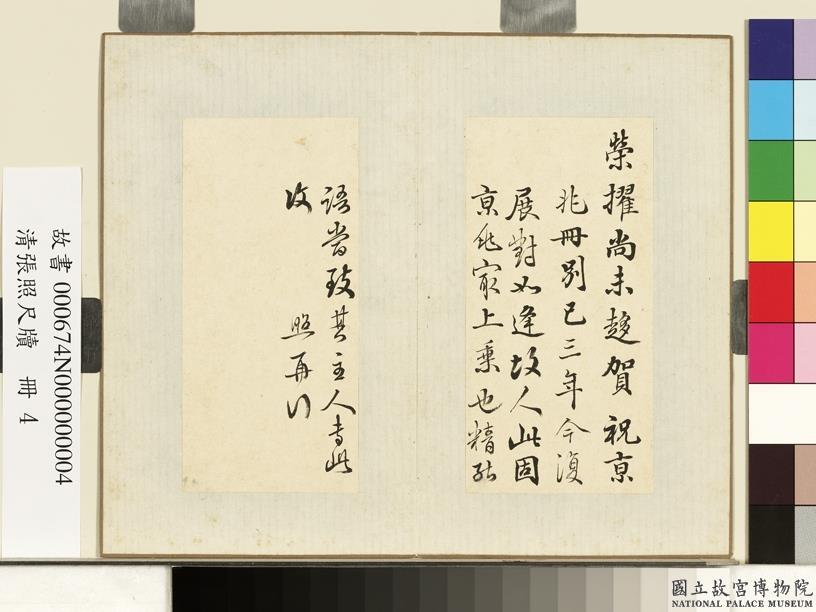 榮擢尚未趍賀祝京
兆冊別已三年今復
展對如逢故人此固
京兆寂上乗也精致
語當致其主人專此
攵
照再行
故書 000674N000000004
清張照尺牘 冊 4
國立故宮博物院
NATIONAL PALACE MUSEUM